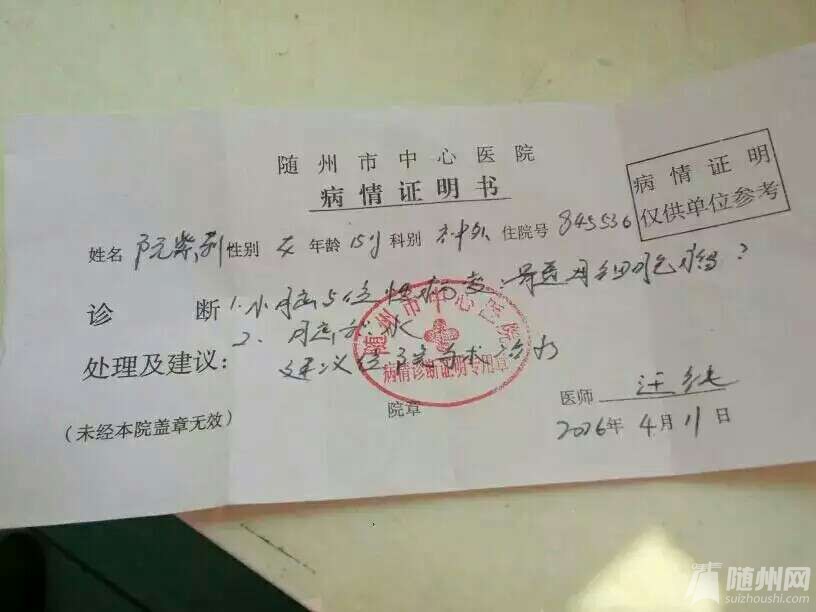 随州市中心医院
病情证明书
病情证明
仅供单位参考
姓名 阮紫 性别 女 年龄 15岁 科别 神外 住院号 845536
诊 断 1.小脑占位性病变: 髓母细胞瘤?
2. 脑积水
处理及建议: 建议住院手术治疗
随州市中心医院
病情诊断证明专用章
院章
医师 汪
(未经本院盖章无效)
2026年4月11日
随州网
suizhoushi.com